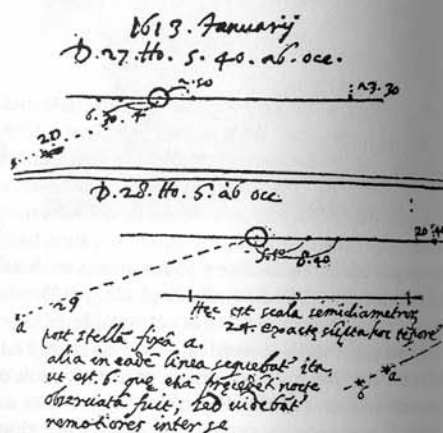 1613. Januarij
D. 27. Ho. 5. 40. ab occ.
2.50
23.30
6.30 4
20
D. 28. Ho. 5. ab occ.
20.40
5.10
6.40
29
a
Hec est scala semidiametros
24. exacte
est stella fixa a.
alia in eadē linea sequebat ita
ut est. b que etiā precedēti nocte
observata fuit; sed videbāt
remotiores inter se
b a